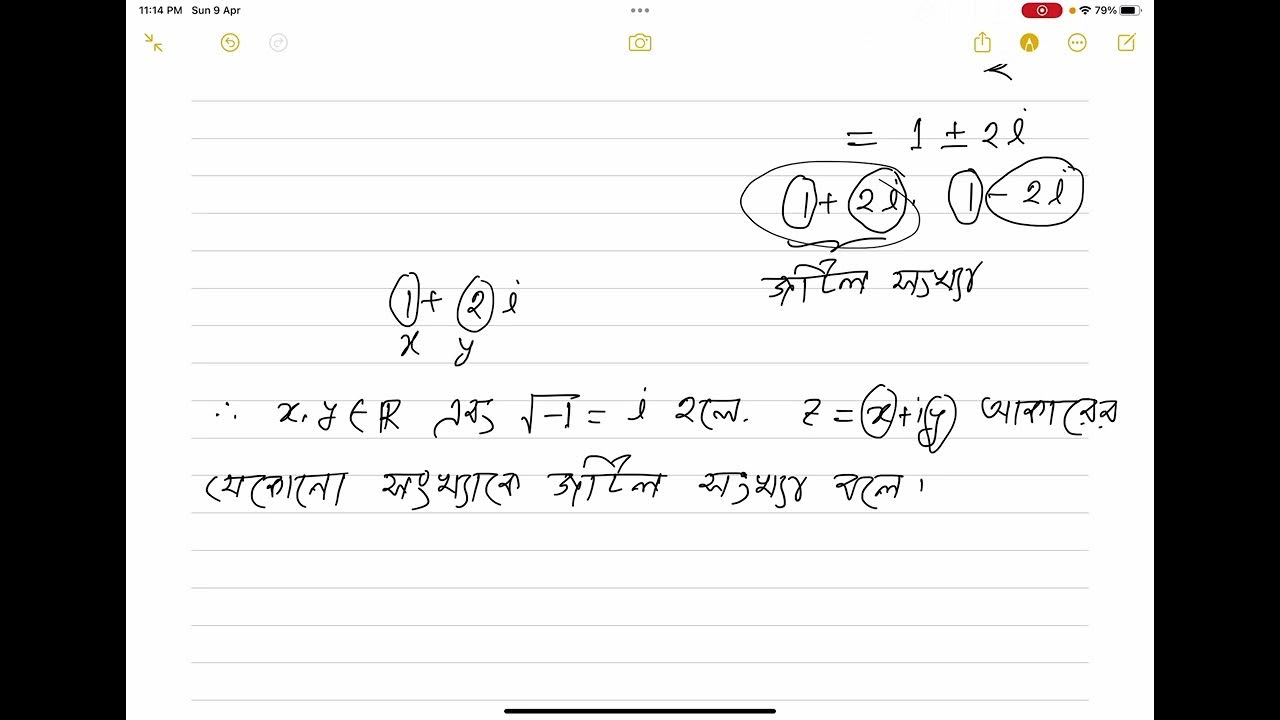 11:14 PM Sun 9 Apr
79%
= 1 ± 2i
1 + 2i, 1 - 2i
জটিল সংখ্যা
1 + 2 i
x y
∴ x, y ∈ ℝ এবং √-1 = i হলে, z = x + iy আকারের
যেকোনো সংখ্যাকে জটিল সংখ্যা বলে।